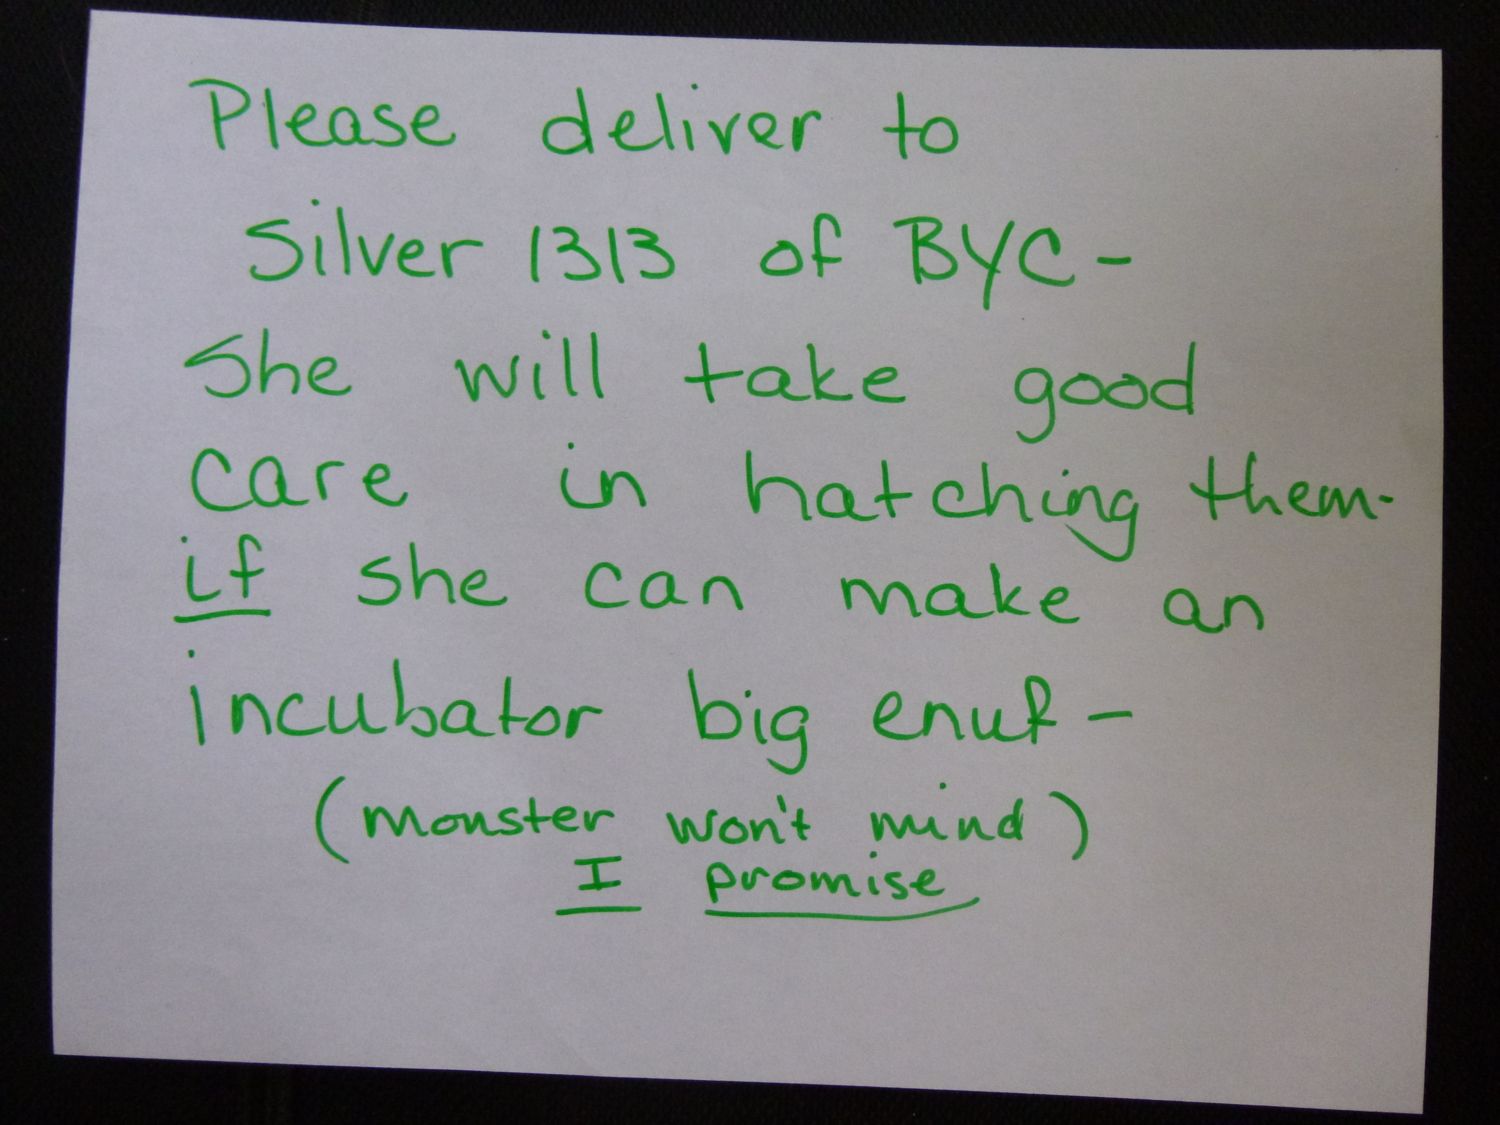 Please deliver to
Silver 1313 of BYC -
She will take good
care in hatching them-
if she can make an
incubator big enuf -
(monster won't mind)
I promise